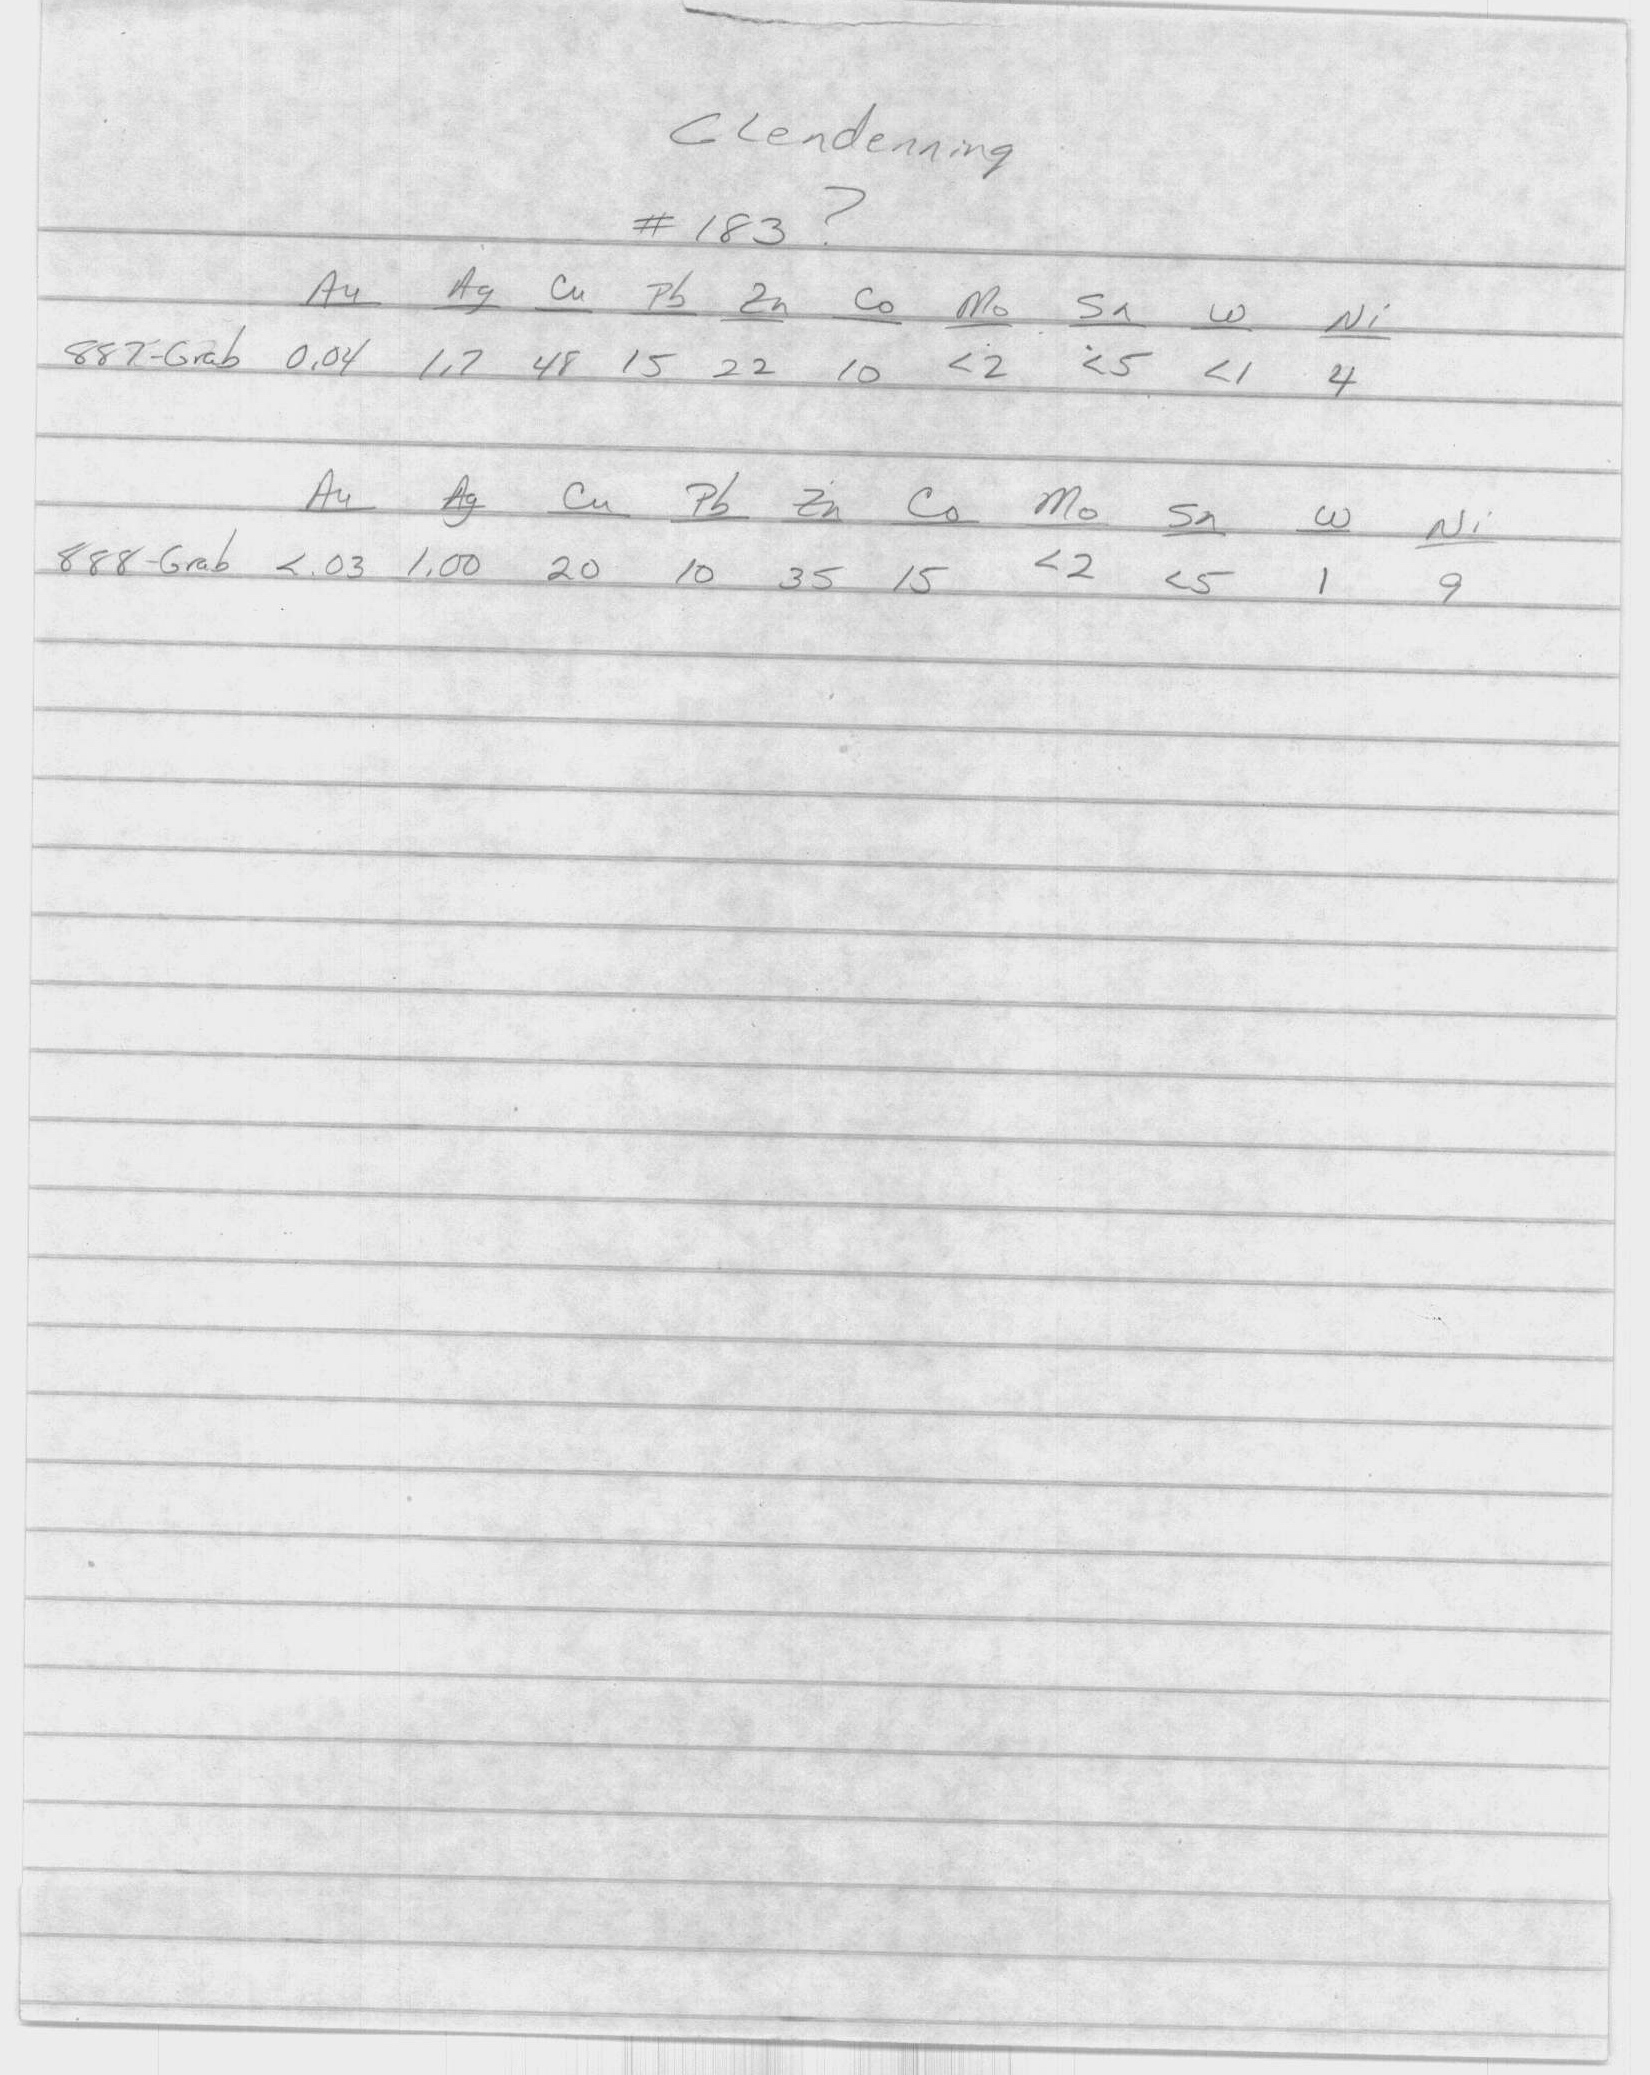 Clendenning
# 183 ?
Au Ag Cu Pb Zn Co Mo Sn W Ni
887-Grab 0.04 1.7 48 15 22 10 <2 <5 <1 4
Au Ag Cu Pb Zn Co Mo Sn W Ni
888-Grab <.03 1.00 20 10 35 15 <2 <5 1 9